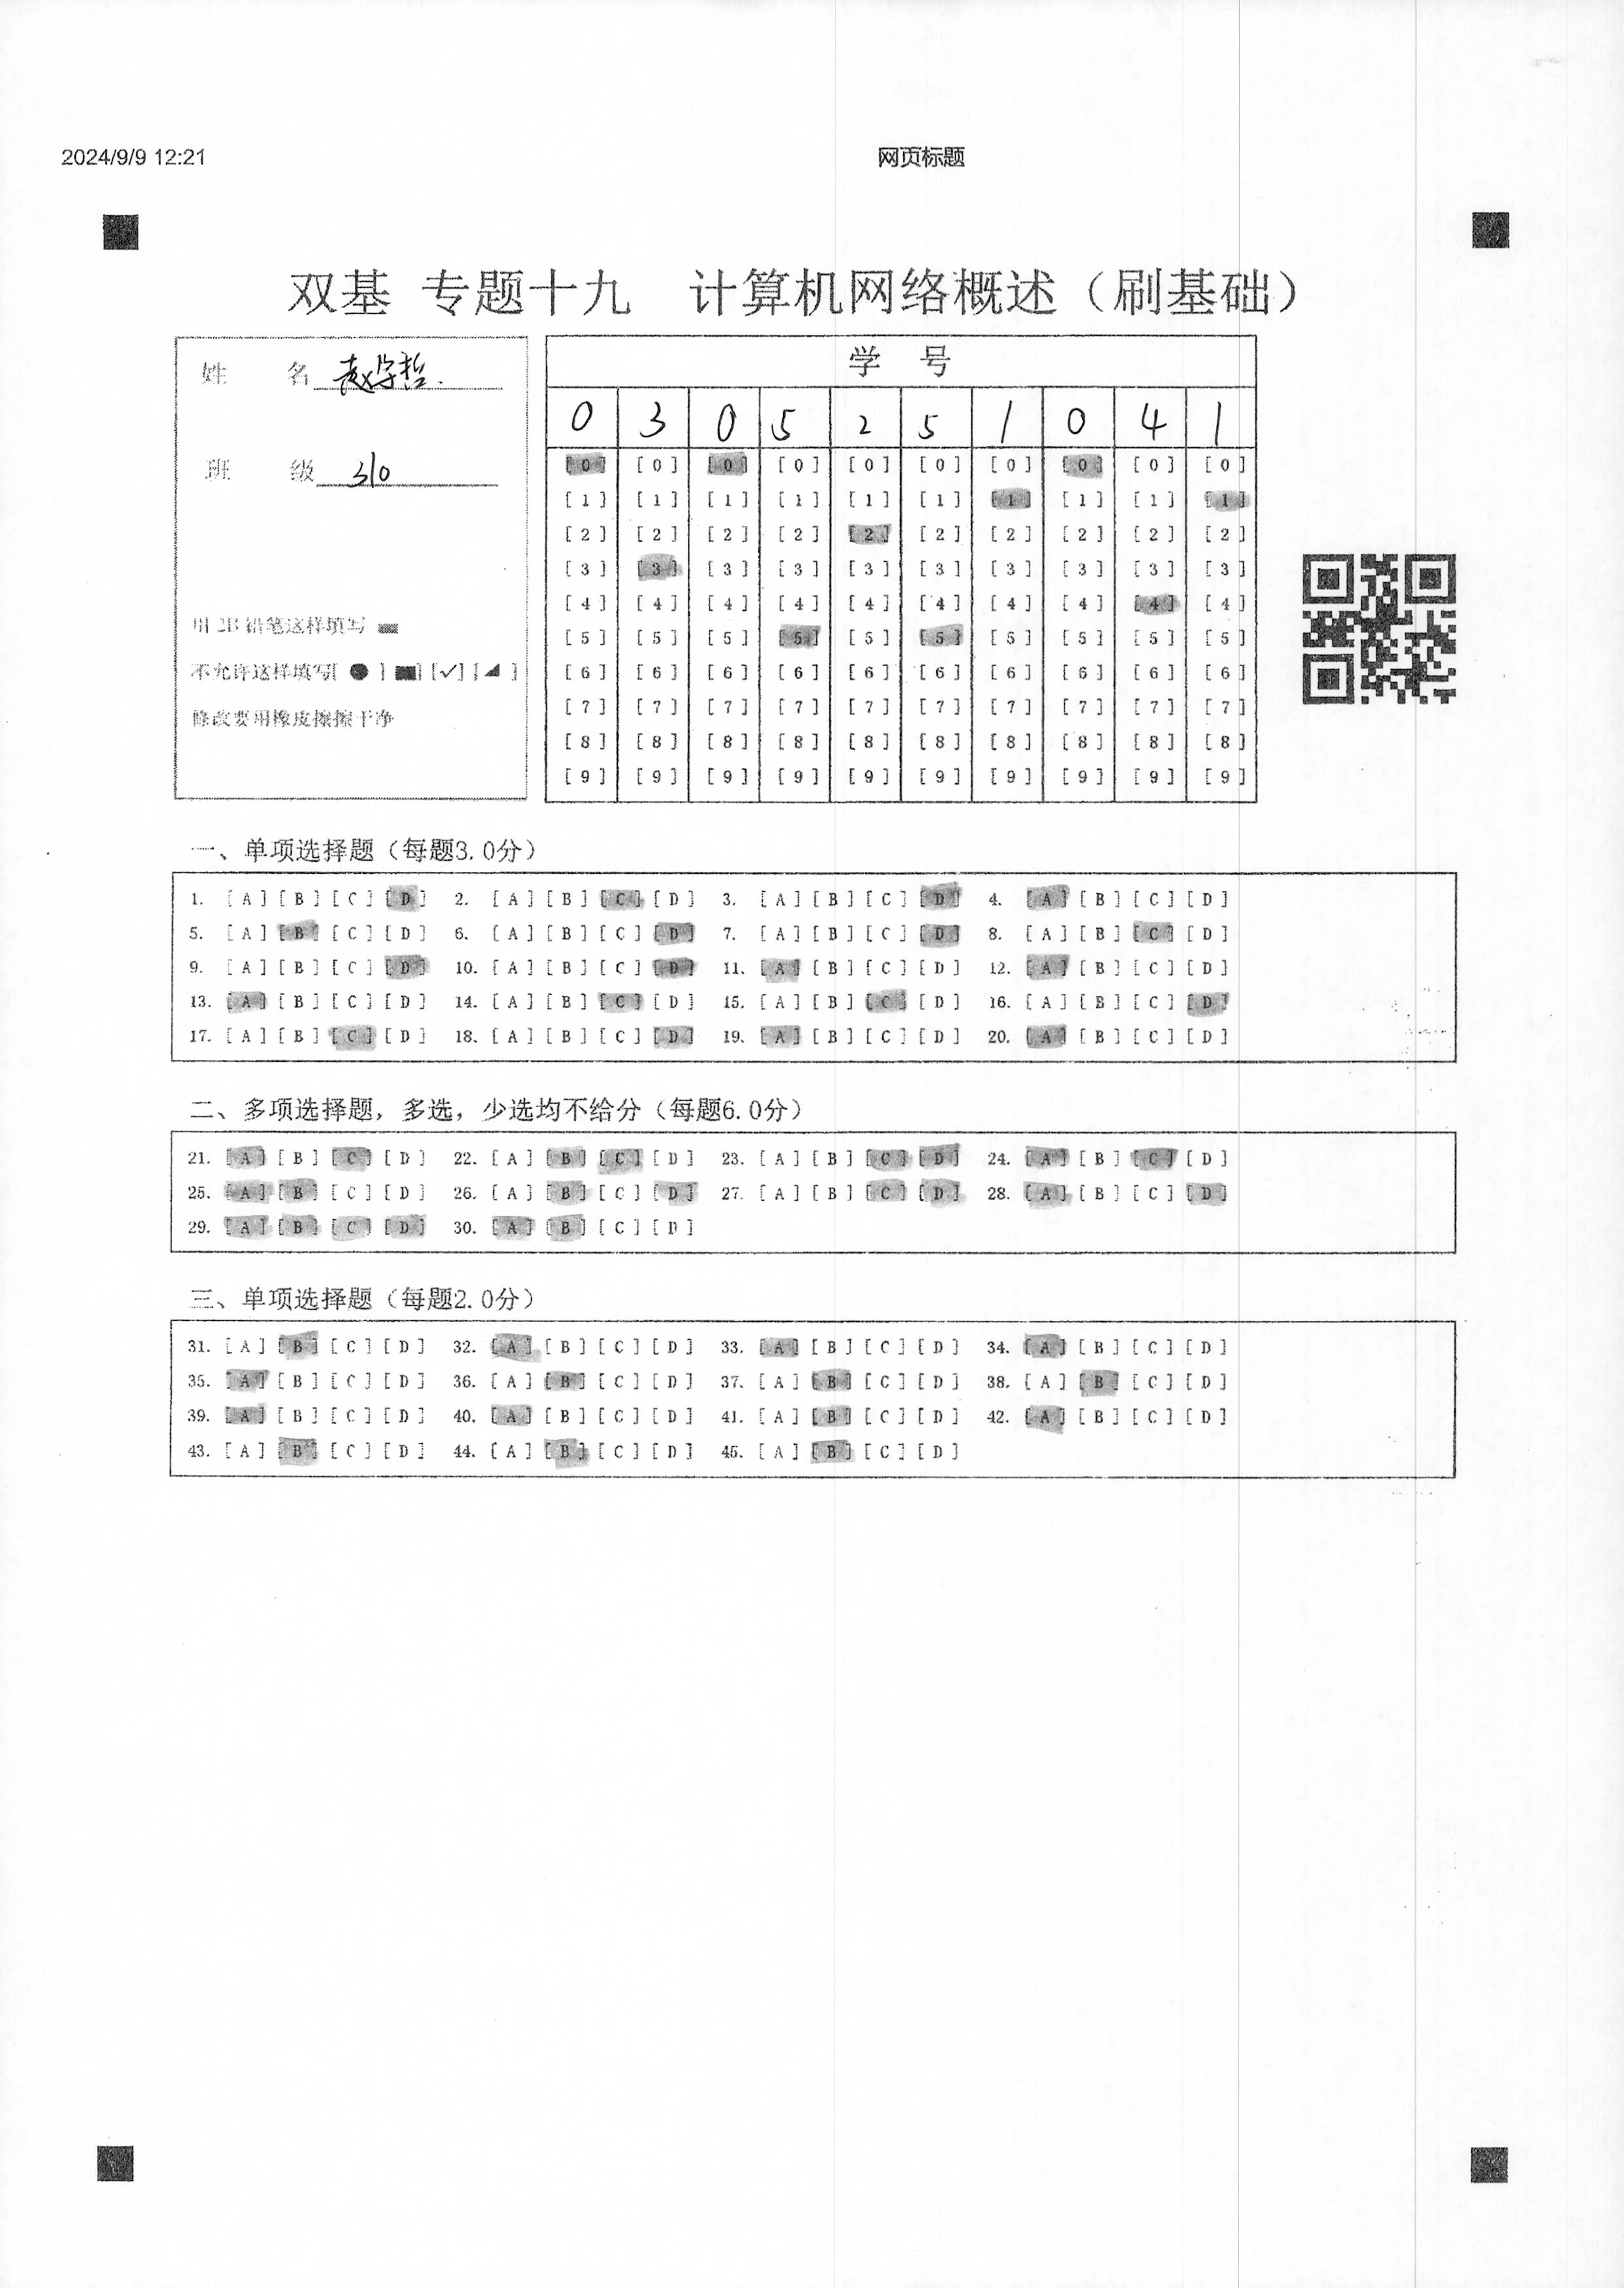 2024/9/9 12:21 网页标题
双基 专题十九 计算机网络概述（刷基础）
姓 名 赵学哲.
班 级 310
用 2B 铅笔这样填写
不允许这样填写[ ● ] [■] [✓] [◢ ]
修改要用橡皮擦擦干净
学 号
0 3 0 5 2 5 1 0 4 1
[0] [0] [0] [0] [0] [0] [0] [0] [0] [0]
[1] [1] [1] [1] [1] [1] [1] [1] [1] [1]
[2] [2] [2] [2] [2] [2] [2] [2] [2] [2]
[3] [3] [3] [3] [3] [3] [3] [3] [3] [3]
[4] [4] [4] [4] [4] [4] [4] [4] [4] [4]
[5] [5] [5] [5] [5] [5] [5] [5] [5] [5]
[6] [6] [6] [6] [6] [6] [6] [6] [6] [6]
[7] [7] [7] [7] [7] [7] [7] [7] [7] [7]
[8] [8] [8] [8] [8] [8] [8] [8] [8] [8]
[9] [9] [9] [9] [9] [9] [9] [9] [9] [9]
一、单项选择题（每题3.0分）
1. [A] [B] [C] [D] 2. [A] [B] [C] [D] 3. [A] [B] [C] [D] 4. [A] [B] [C] [D]
5. [A] [B] [C] [D] 6. [A] [B] [C] [D] 7. [A] [B] [C] [D] 8. [A] [B] [C] [D]
9. [A] [B] [C] [D] 10. [A] [B] [C] [D] 11. [A] [B] [C] [D] 12. [A] [B] [C] [D]
13. [A] [B] [C] [D] 14. [A] [B] [C] [D] 15. [A] [B] [C] [D] 16. [A] [B] [C] [D]
17. [A] [B] [C] [D] 18. [A] [B] [C] [D] 19. [A] [B] [C] [D] 20. [A] [B] [C] [D]
二、多项选择题，多选，少选均不给分（每题6.0分）
21. [A] [B] [C] [D] 22. [A] [B] [C] [D] 23. [A] [B] [C] [D] 24. [A] [B] [C] [D]
25. [A] [B] [C] [D] 26. [A] [B] [C] [D] 27. [A] [B] [C] [D] 28. [A] [B] [C] [D]
29. [A] [B] [C] [D] 30. [A] [B] [C] [D]
三、单项选择题（每题2.0分）
31. [A] [B] [C] [D] 32. [A] [B] [C] [D] 33. [A] [B] [C] [D] 34. [A] [B] [C] [D]
35. [A] [B] [C] [D] 36. [A] [B] [C] [D] 37. [A] [B] [C] [D] 38. [A] [B] [C] [D]
39. [A] [B] [C] [D] 40. [A] [B] [C] [D] 41. [A] [B] [C] [D] 42. [A] [B] [C] [D]
43. [A] [B] [C] [D] 44. [A] [B] [C] [D] 45. [A] [B] [C] [D]